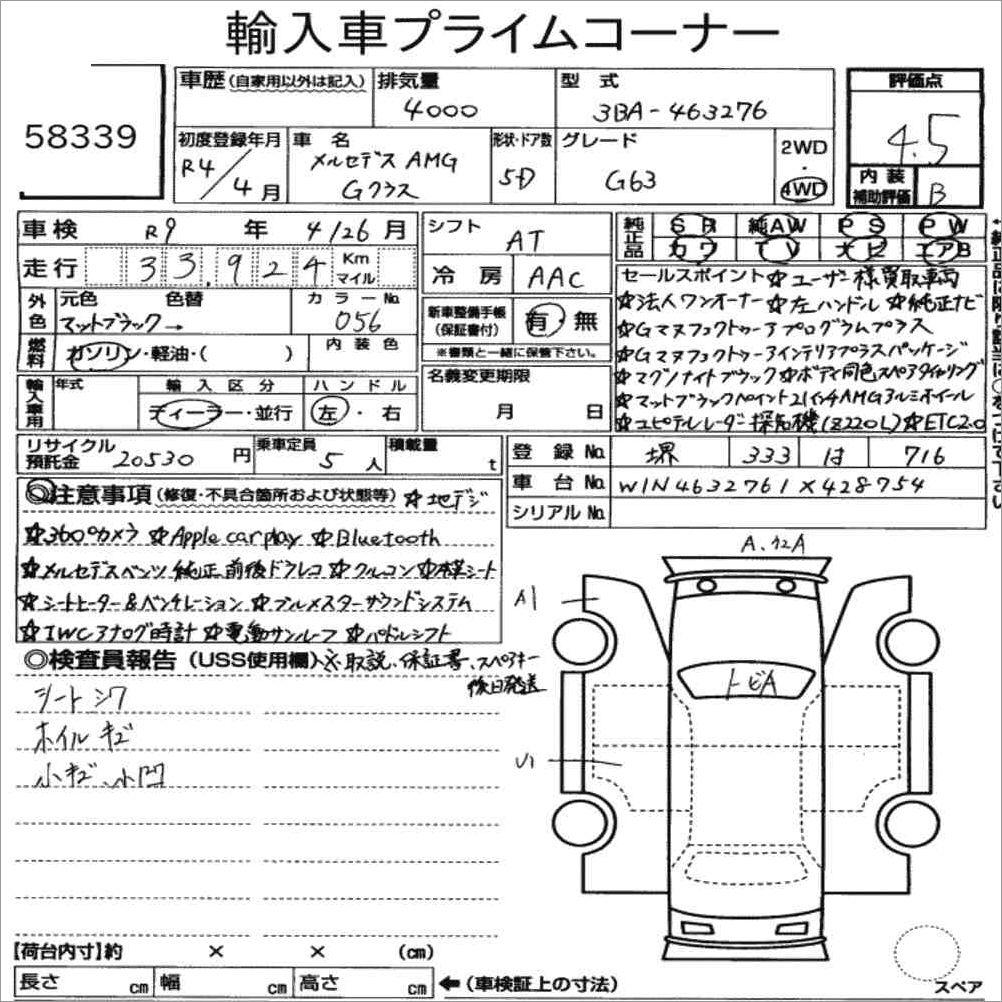 輸入車プライムコーナー
58339
車歴(自家用以外は記入) 排気量 4000 型式 3BA-463276 評価点 4.5
初度登録年月 R4/4月 車名 メルセデス AMG Gクラス 形状・ドア数 5D グレード G63 2WD 4WD 内装補助評価 B
車検 R9年 4/26月 シフト AT 純正品 SR 純AW PS PW
走行 33,924 Km マイル 冷房 AAC カワ TV ナビ エアB
外色 元色 色替 マットブラック→ カラーNo. 056 新車整備手帳(保証書付) 有 無
燃料 ガソリン・軽油・( ) 内装色 ※書類と一緒に保管下さい。
輸入車用 年式 輸入区分 ディーラー・並行 ハンドル 左・右 名義変更期限 月 日
セールスポイント ☆ユーザー様買取車両
☆法人ワンオーナー ☆左ハンドル ☆純正ナビ
☆Gマヌファクトゥーアプログラムプラス
☆Gマヌファクトゥーアインテリアプラスパッケージ
☆マグノナイトブラック ☆ボディ同色スペアタイヤリング
☆マットブラックペイント21インチAMGアルミホイール
☆ユピテルレーダー探知機(Z220L) ☆ETC2.0
リサイクル預託金 20530円 乗車定員 5人 積載量 t
登録No. 堺 333 は 716
車台No. W1N4632761X428754
シリアルNo.
◎注意事項(修復・不具合箇所および状態等) ☆地デジ
☆360°カメラ ☆Apple carplay ☆Bluetooth
☆メルセデスベンツ純正前後ドラレコ ☆クルコン ☆革シート
☆シートヒーター&ベンチレーション ☆ブルメスターサウンドシステム
☆IWCアナログ時計 ☆電動サンルーフ ☆パドルシフト
◎検査員報告(USS使用欄) ※取説、保証書、スペアキー
後日発送
シートシワ
ホイルキズ
小キズ、小凹
A、 A
A1
トビA
U1
【荷台内寸】約 × × (cm)
長さ cm 幅 cm 高さ cm ←(車検証上の寸法)
スペア